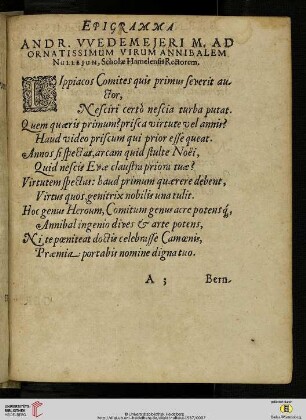 EPIGRAMMA
ANDR. VVEDEMEJERI M. AD
ORNATISSIMUM VIRUM ANNIBALEM
NULLEJUN, Scholæ Hamelensis Rectorem.
LIppiacos Comites quis primus severit au-
ctor,
Nesciri certò nescia turba putat.
Quem quæris primum? prisca virtute vel annis?
Haud video priscum qui prior esse queat.
Annos si spectas, arcam quid stulte Noëi,
Quid nescis Evæ claustra priora tuæ?
Virtutem spectas: haud primum quærere debent,
Virtus quos genitrix nobilis una tulit.
Hoc genus Heroum, Comitum genus acre potensq́,
Annibal ingenio dives & arte potens,
Ni te pœniteat doctis celebrasse Camœnis,
Præmia portabis nomine digna tuo.
A 3 Bern-
UNIVERSITÄTS-
BIBLIOTHEK
HEIDELBERG